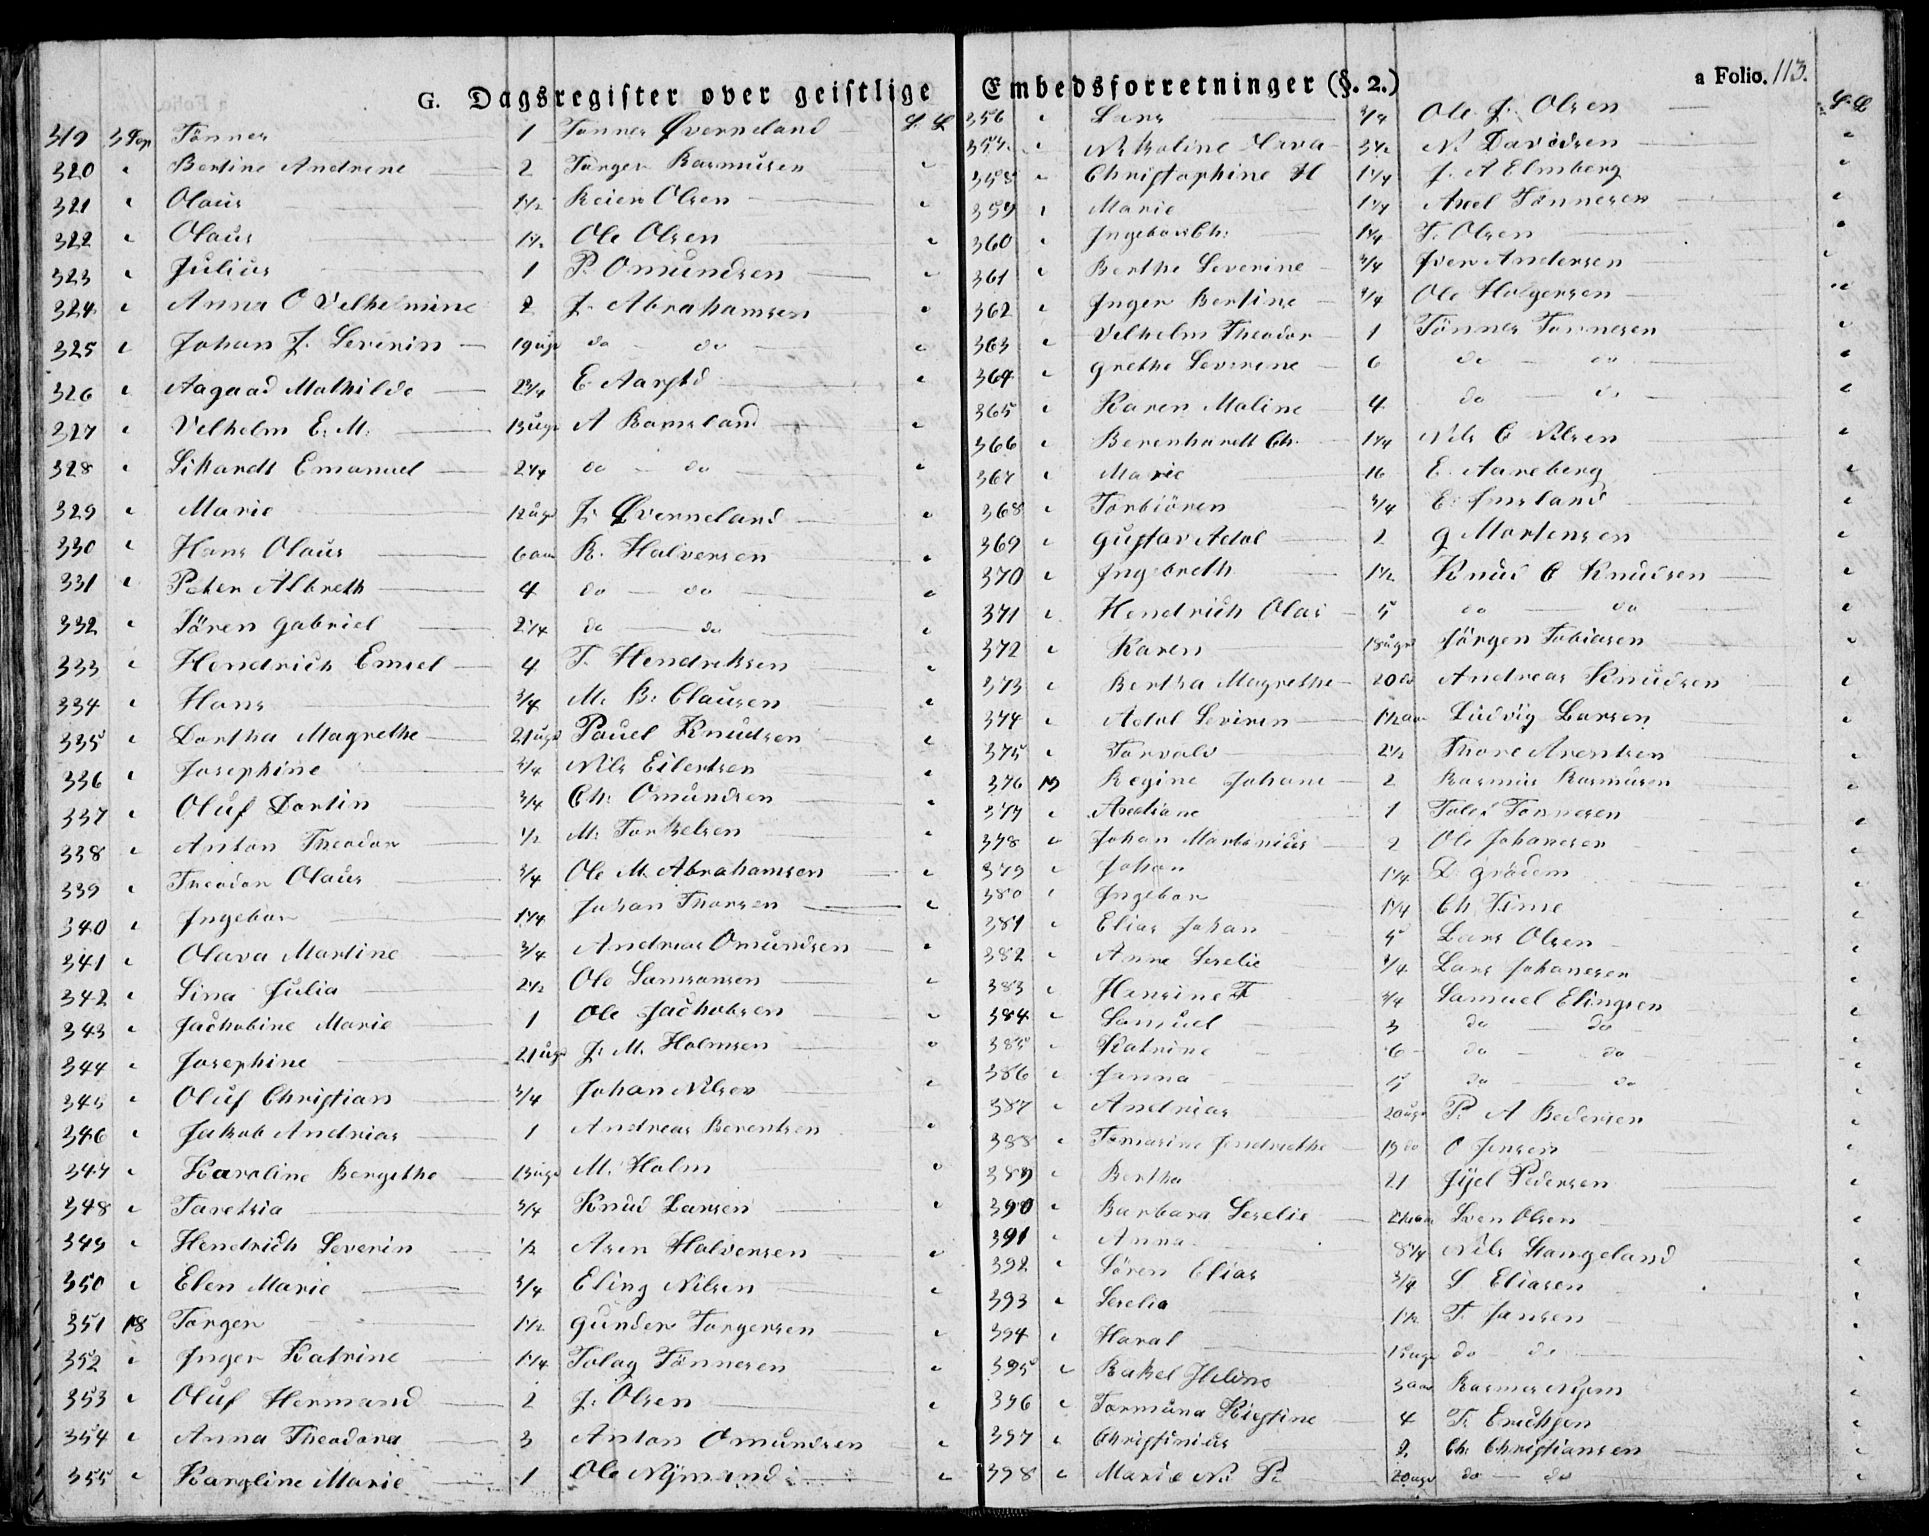 G. Dagsregister over geistlige Embedsforretninger (§. 2.) a Folio. 113.
319 Tønnes 1 Tønnes Øverneland
320 " Bertine Andrene 2 Torger Rasmusen "
321 " Olaus 1 1/2 Reier Olsen "
322 " Olaus 1 1/2 Ole Olsen "
323 " Julius 1 P. Omundsen "
324 " Anna O Vilhelmine 2 J. Abrahamsen "
325 " Johan J. Severin 19 uger do do "
326 " Aagaad Mathilde 2 3/4 E. "
327 " Vilhelm E. M. 13 uger A Ramsland "
328 " Emanuel 2 1/4 do do "
329 " Marie 12 uger J. Øverneland "
330 " Hans Olaus 6 aar K. Halversen "
331 " Peter Albreth 4 do do "
332 " Sören Gabriel 2 1/4 do do "
333 " Hendrich Emiel 4 T. Hendriksen "
334 " Hans 3/4 M. B. Clausen "
335 " Dortha Magrethe 21 uger Pouel Knudsen "
336 " Josephine 3/4 Nils Eilertsen "
337 " Oluf Dortin 3/4 Ch. Omundsen "
338 " Anton Theodor 1/2 M. Torkelsen "
339 " Theodor Olaus 3/4 Ole M. Abrahamsen "
340 " Ingebor 1 1/4 Johan Thorsen "
341 " Olava Martine 3/4 Andreas Omundsen "
342 " Sina Julia 2 1/2 Ole Samsonsen "
343 " Jachobine Marie 1 Ole Jachobsen "
344 " Josephine 21 uger J. M. Holmsen "
345 " Oluf Christian 3/4 Johan Nilsen "
346 " Jakob Andreas 1 Andreas Berentsen "
347 " Karoline Bergithe 13 uger M. Holm "
348 " Taretsia 3/4 Knud Larsen "
349 " Hendrich Severin 1/2 Asen Halversen "
350 " Elen Marie 3/4 Eling Nilsen "
351 18 Torger 1 1/2 Gunder Torgersen "
352 " Inger Katrine 1 1/4 Tolag Tönnesen "
353 " Oluf Hermand 2 J. Olsen "
354 " Anna Theodora 3 Anton Omundsen "
355 " Karoline Marie 1 Ole Nÿmand "
356 " Lars 3/4 Ole J. Olsen
357 " Nikoline 3 1/2 N. Davidsen "
358 " Christophine H 1 1/4 J. A Elmberg "
359 " Marie 1 1/4 Axel Tönnesen "
360 " Ingebor Ch. 1 1/4 T. Olsen "
361 " Berthe Severine 3/4 Iver Andersen "
362 " Inger Bertine 3/4 Ole Holgersen "
363 " Vilhelm Theodor 1 Tönnes Tonnesen "
364 " Grethe Severine 6 do do "
365 " Karen Maline 4 do do "
366 " Berenhardt Ch. 1 1/4 Nils C Nilsen "
367 " Marie 16 E. Aareberg "
368 " Torbiören 3/4 E. "
369 " Gustav Adol 2 G Mortensen "
370 " Ingebreth 1 1/2 Knud C Knudsen "
371 " Hendrich Olai 5 do do "
372 " Karen 18 uger Jörgen Tobiasen "
373 " Bertha Magrethe 20 do Andreas Knudsen "
374 " Adol Severin 1 1/2 aar Ludvig Larsen "
375 " Torvald 2 1/2 Thore Arentsen "
376 19 Regine Johane 2 Rasmus Rasmusen "
377 " 1 Tonnesen "
378 " Johan Martinius 2 Ole Johanesen "
379 " Johan 1 1/4 D. Grödem "
380 " Ingebor 1 1/4 Ch. "
381 " Elias Johan 5 Lars Olsen "
382 " Anne Serelie 3/4 Lars Johanesen "
383 " Hensine T 3/4 Samuel Elingsen "
384 " Samuel 3 do do "
385 " Katrine 6 do do "
386 " Janna do do "
387 " Andreas 20 uger P. A Pedersen "
388 " 19 do O Jensen "
389 " Bertha 21 Pedersen "
390 " Barbara Serelie Sven Olsen "
391 " Anna 8 1/4 Nils Stangeland "
392 " Sören Elias 3/4 S Eliasen "
393 " Serelia 1 1/2 T. Jansen "
394 " Haral do do "
395 " Rakel 3 aar Rasmus "
396 " Tormuna Kirstine 4 T. Erichsen "
397 " Christinius 2 Ch. Christiansen "
398 " Marie N. P. 20 uger do do "